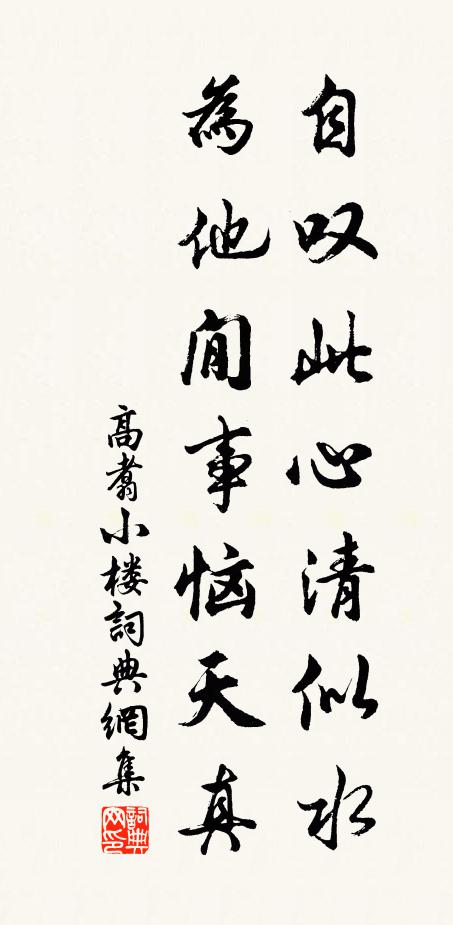 自叹此心清似水
為他閒事恼天真
高翥小楼詞典網集
詞典网印